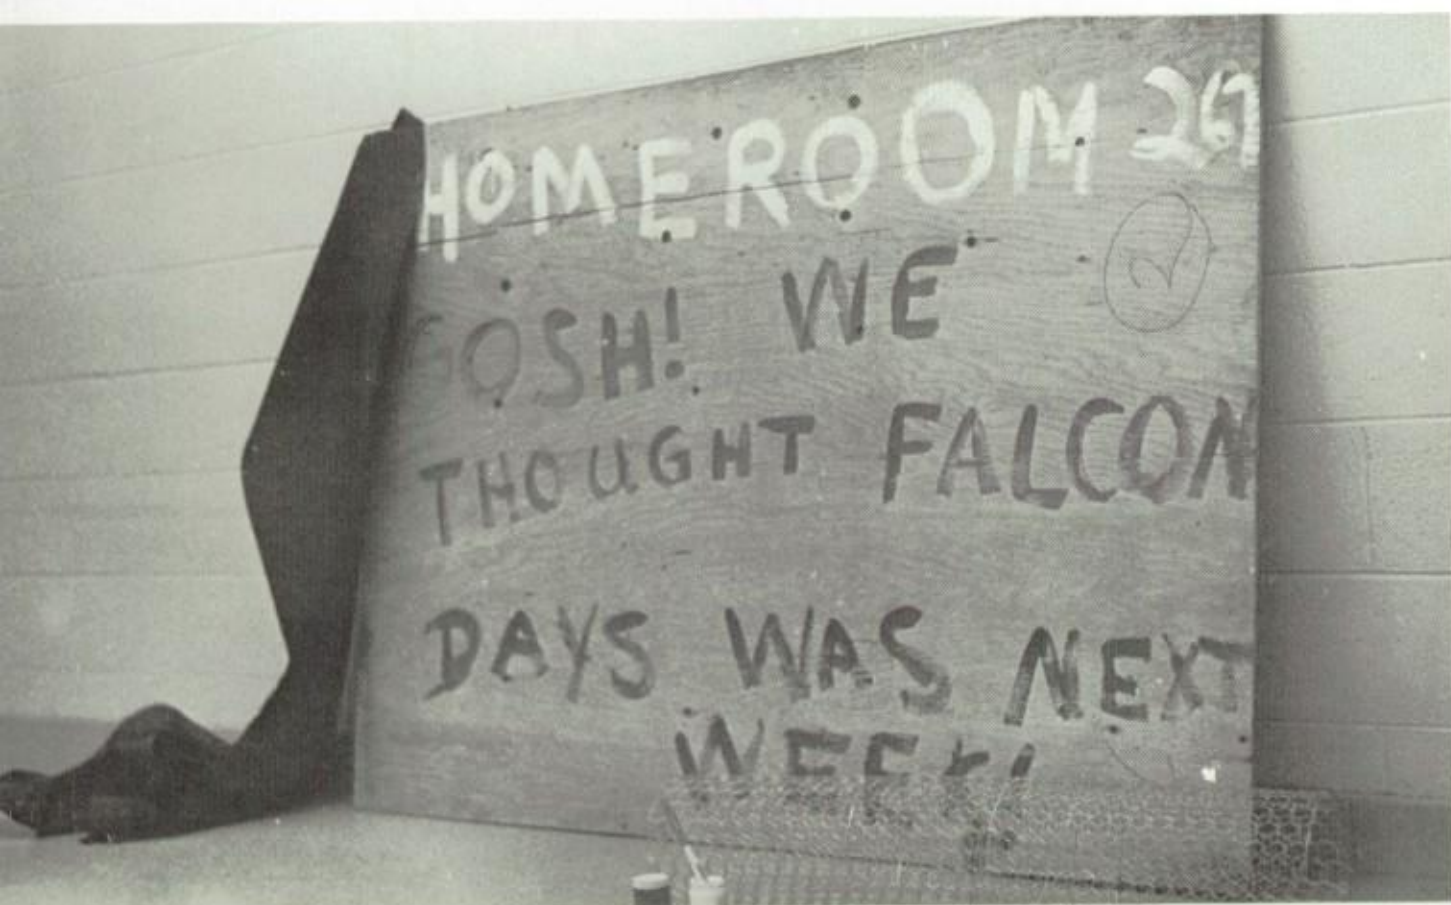 HOMEROOM 267
2
GOSH! WE
THOUGHT FALCON
DAYS WAS NEXT
WEEK!